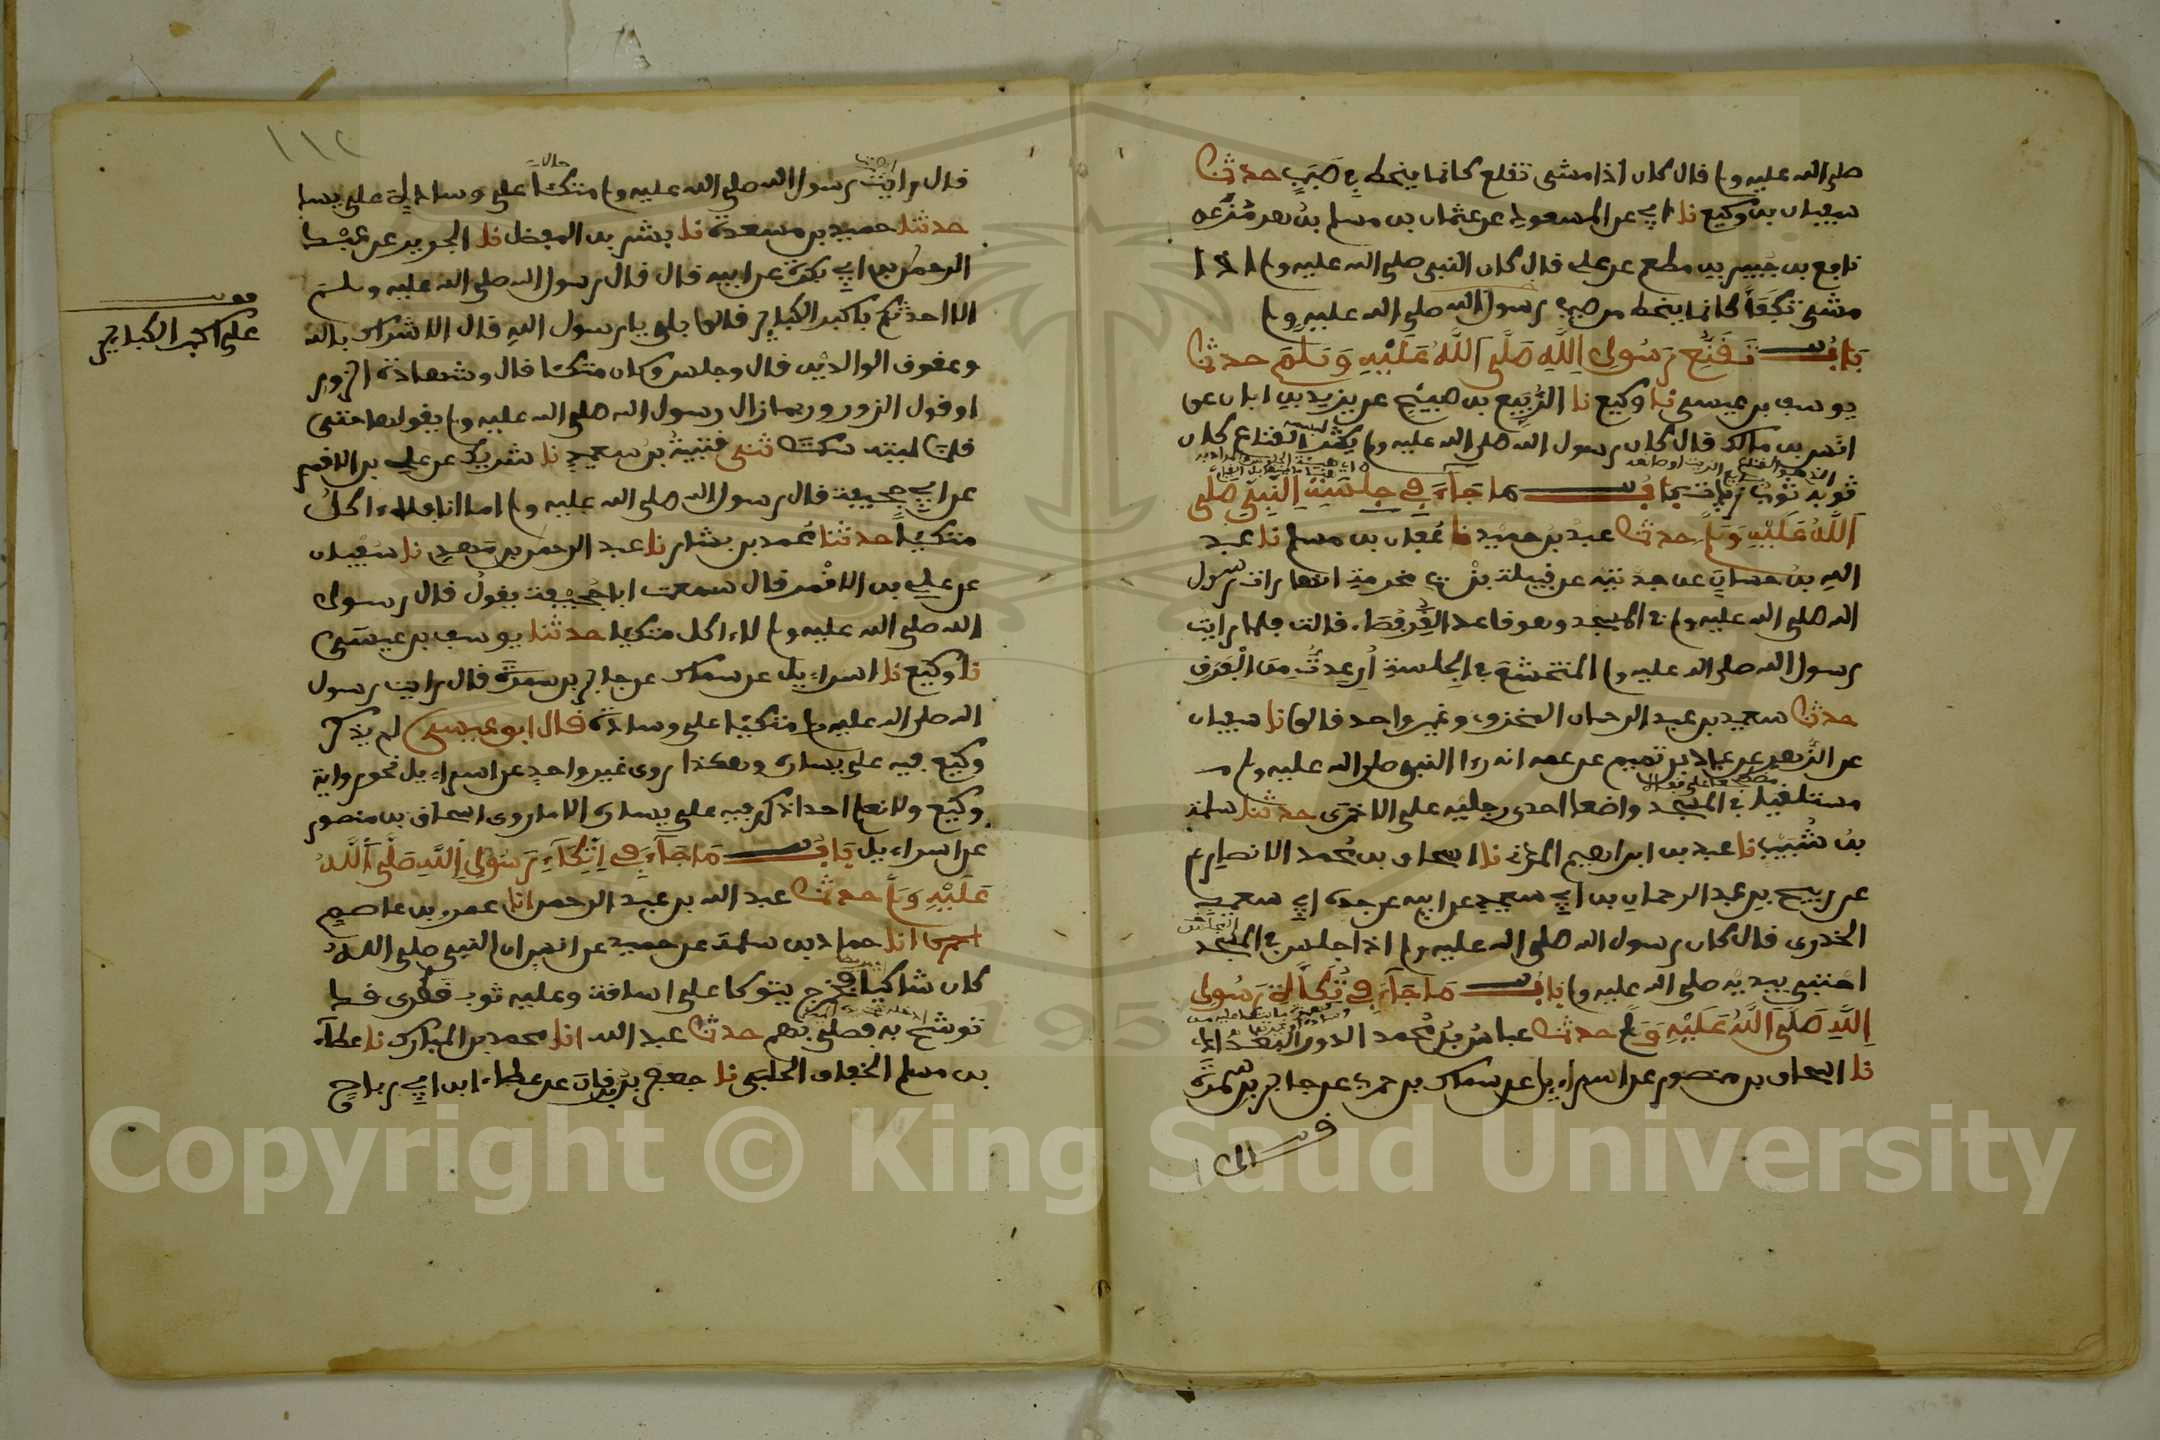 صلى الله عليه وسلم قال كان اذا مشى تقلع كانما ينحط في صَبَبٍ حدثنا
سفيان بن وكيع نا ابي عن المسعودي عن عثمان بن مسلم بن هرمز عن
نافع بن جبير بن مطعم عن علي قال كان النبي صلى الله عليه وسلم اذا
مشى تكفأ كانما ينحط من صبب رسول الله صلى الله عليه وسلم
باب تقنع رسول الله صلى الله عليه وسلم حدثنا
يوسف بن عيسى نا وكيع نا الربيع بن صبيح عن يزيد بن ابان عن
انس بن مالك قال كان رسول الله صلى الله عليه وسلم يكثر القناع كان
ثوبه ثوب زيات باب ما جاء في جلسة النبي صلى
الله عليه وسلم حدثنا عبد بن حميد نا عفان بن مسلم نا عبد
الله بن حسان عن جدتيه عن قيلة بنت مخرمة انها رات رسول
الله صلى الله عليه وسلم في المسجد وهو قاعد القرفصاء قالت فلما رايت
رسول الله صلى الله عليه وسلم المتخشع في الجلسة اُرعدتُ من الفرق
حدثنا سعيد بن عبد الرحمان المخزومي وغير واحد قالوا نا سفيان
عن الزهري عن عباد بن تميم عن عمه انه راا النبي صلى الله عليه وسلم
مستلقيا في المسجد واضعا احدى رجليه على الاخرى حدثنا سلمة
بن شبيب نا عبد بن ابراهيم المدني نا اسحاق بن محمد الانصاري
عن ربيح بن عبد الرحمان بن ابي سعيد عن ابيه عن جده ابي سعيد
الخدري قال كان رسول الله صلى الله عليه وسلم اذا جلس في المسجد
احتبى بيديه صلى الله عليه وسلم باب ما جاء في تكأة رسول
الله صلى الله عليه وسلم حدثنا عباس بن محمد الدوري البغدادي
نا اسحاق بن منصور عن اسراءيل عن سماك بن حرب عن جابر بن سمرة
قال
١١٢
قال رايت رسول الله صلى الله عليه وسلم متكئا على وسادة على يساره
حدثنا حميد بن مسعدة نا بشر بن المفضل نا الجريري عن عبد
الرحمن بن ابي بكرة عن ابيه قال قال رسول الله صلى الله عليه وسلم
الا احدثكم باكبر الكباير قالوا بلى يا رسول الله قال الاشراك بالله
وعقوق الوالدين قال وجلس وكان متكئا قال وشهادة الزور
او قول الزور وربما زال رسول الله صلى الله عليه وسلم يقولها حتى
قلنا ليته سكت ثنى قتيبة بن سعيد نا شريك عن علي بن الاقمر
عن ابي جحيفة قال رسول الله صلى الله عليه وسلم اما انا فلا ءاكل
متكئا حدثنا محمد بن بشار نا عبد الرحمن بن مهدي نا سفيان
عن علي بن الاقمر قال سمعت ابا جحيفة يقول قال رسول
الله صلى الله عليه وسلم لا ءاكل متكيا حدثنا يوسف بن عيسى
نا وكيع نا اسراءيل عن سماك عن جابر بن سمرة قال رايت رسول
الله صلى الله عليه وسلم متكيا على وسادة قال ابو عيسى لم يذكر
وكيع فيه على يساره وهكذا روى غير واحد عن اسراءيل نحو رواية
وكيع ولا نعلم احدا ذكر فيه على يساره الا ما روى اسحاق بن منصور
عن اسراءيل باب ما جاء في اتكاء رسول الله صلى الله
عليه وسلم حدثنا عبد الله بن عبد الرحمن انا عمرو بن عاصم
انا حماد بن سلمة عن حميد عن انس ان النبي صلى الله
كان شاكيا فخرج يتوكا على اسامة وعليه ثوب قطري قد
توشح به فصلى بهم حدثنا عبد الله انا محمد بن المبارك نا عطاء
بن مسلم الخفاف الحلبي نا جعفر بن برقان عن عطاء ابن ابي رباح
على اكبر الكباير
195
Copyright © King Saud University